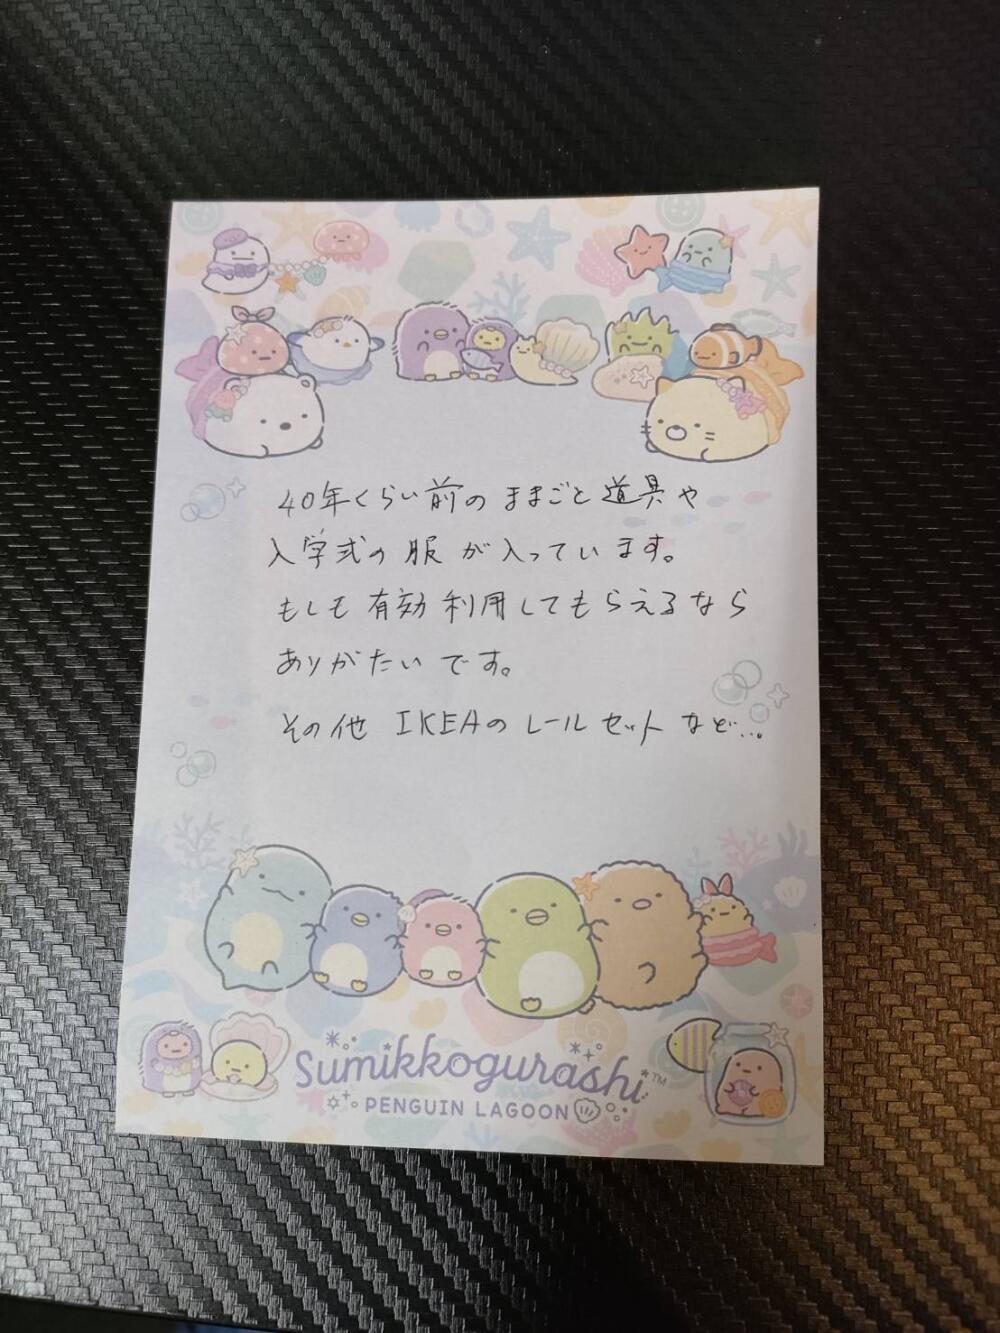 40年くらい前のままごと道具や
入学式の服が入っています。
もしも有効利用してもらえるなら
ありがたいです。
その他 IKEAのレールセットなど...。
Sumikkogurashi™
PENGUIN LAGOON